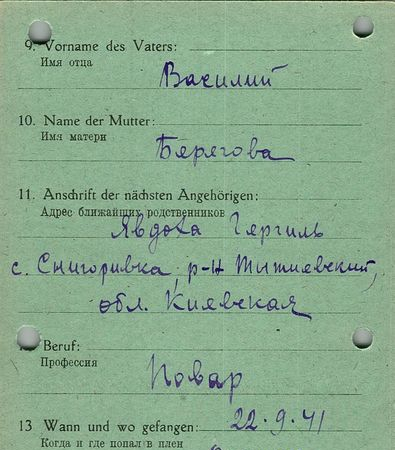 9. Vorname des Vaters:
Имя отца
Василий
10. Name der Mutter:
Имя матери
Берегова
11. Anschrift der nächsten Angehörigen:
Адрес ближайщих родственников
Явдоха Гергиль
с. Снигоривка, р-н Тытиевский,
обл. Киевская
Beruf:
Профессия
Повар
13 Wann und wo gefangen: 22.9.41
Когда и где попал в плен